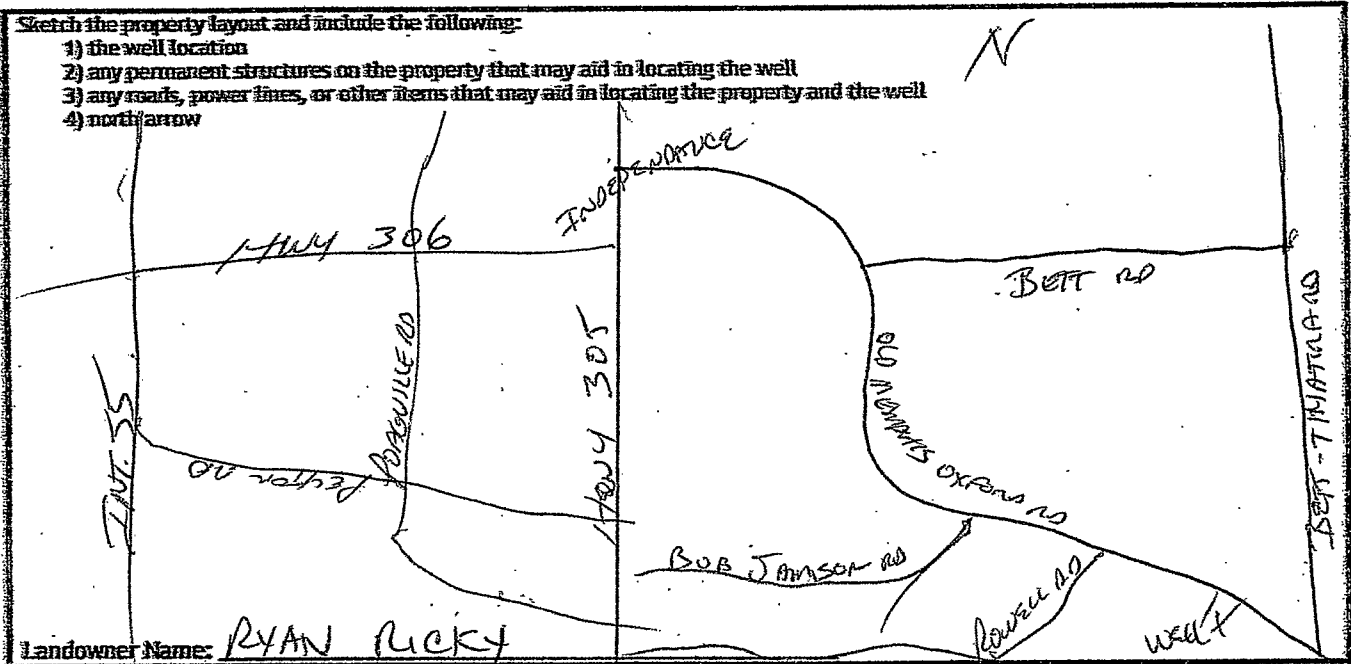 Sketch the property layout and include the following:
1) the well location
2) any permanent structures on the property that may aid in locating the well
3) any roads, power lines, or other items that may aid in locating the property and the well
4) north arrow
N
INDEPENDANCE
HWY 306
BETT RD
HWY 305
INT. 55
PEYTON RD
OLD MEMPHIS OXFORD RD
BETT - TIMATHA RD
BOB JAMISON RD
ROWELL RD
WELL X
Landowner Name: RYAN RICKY